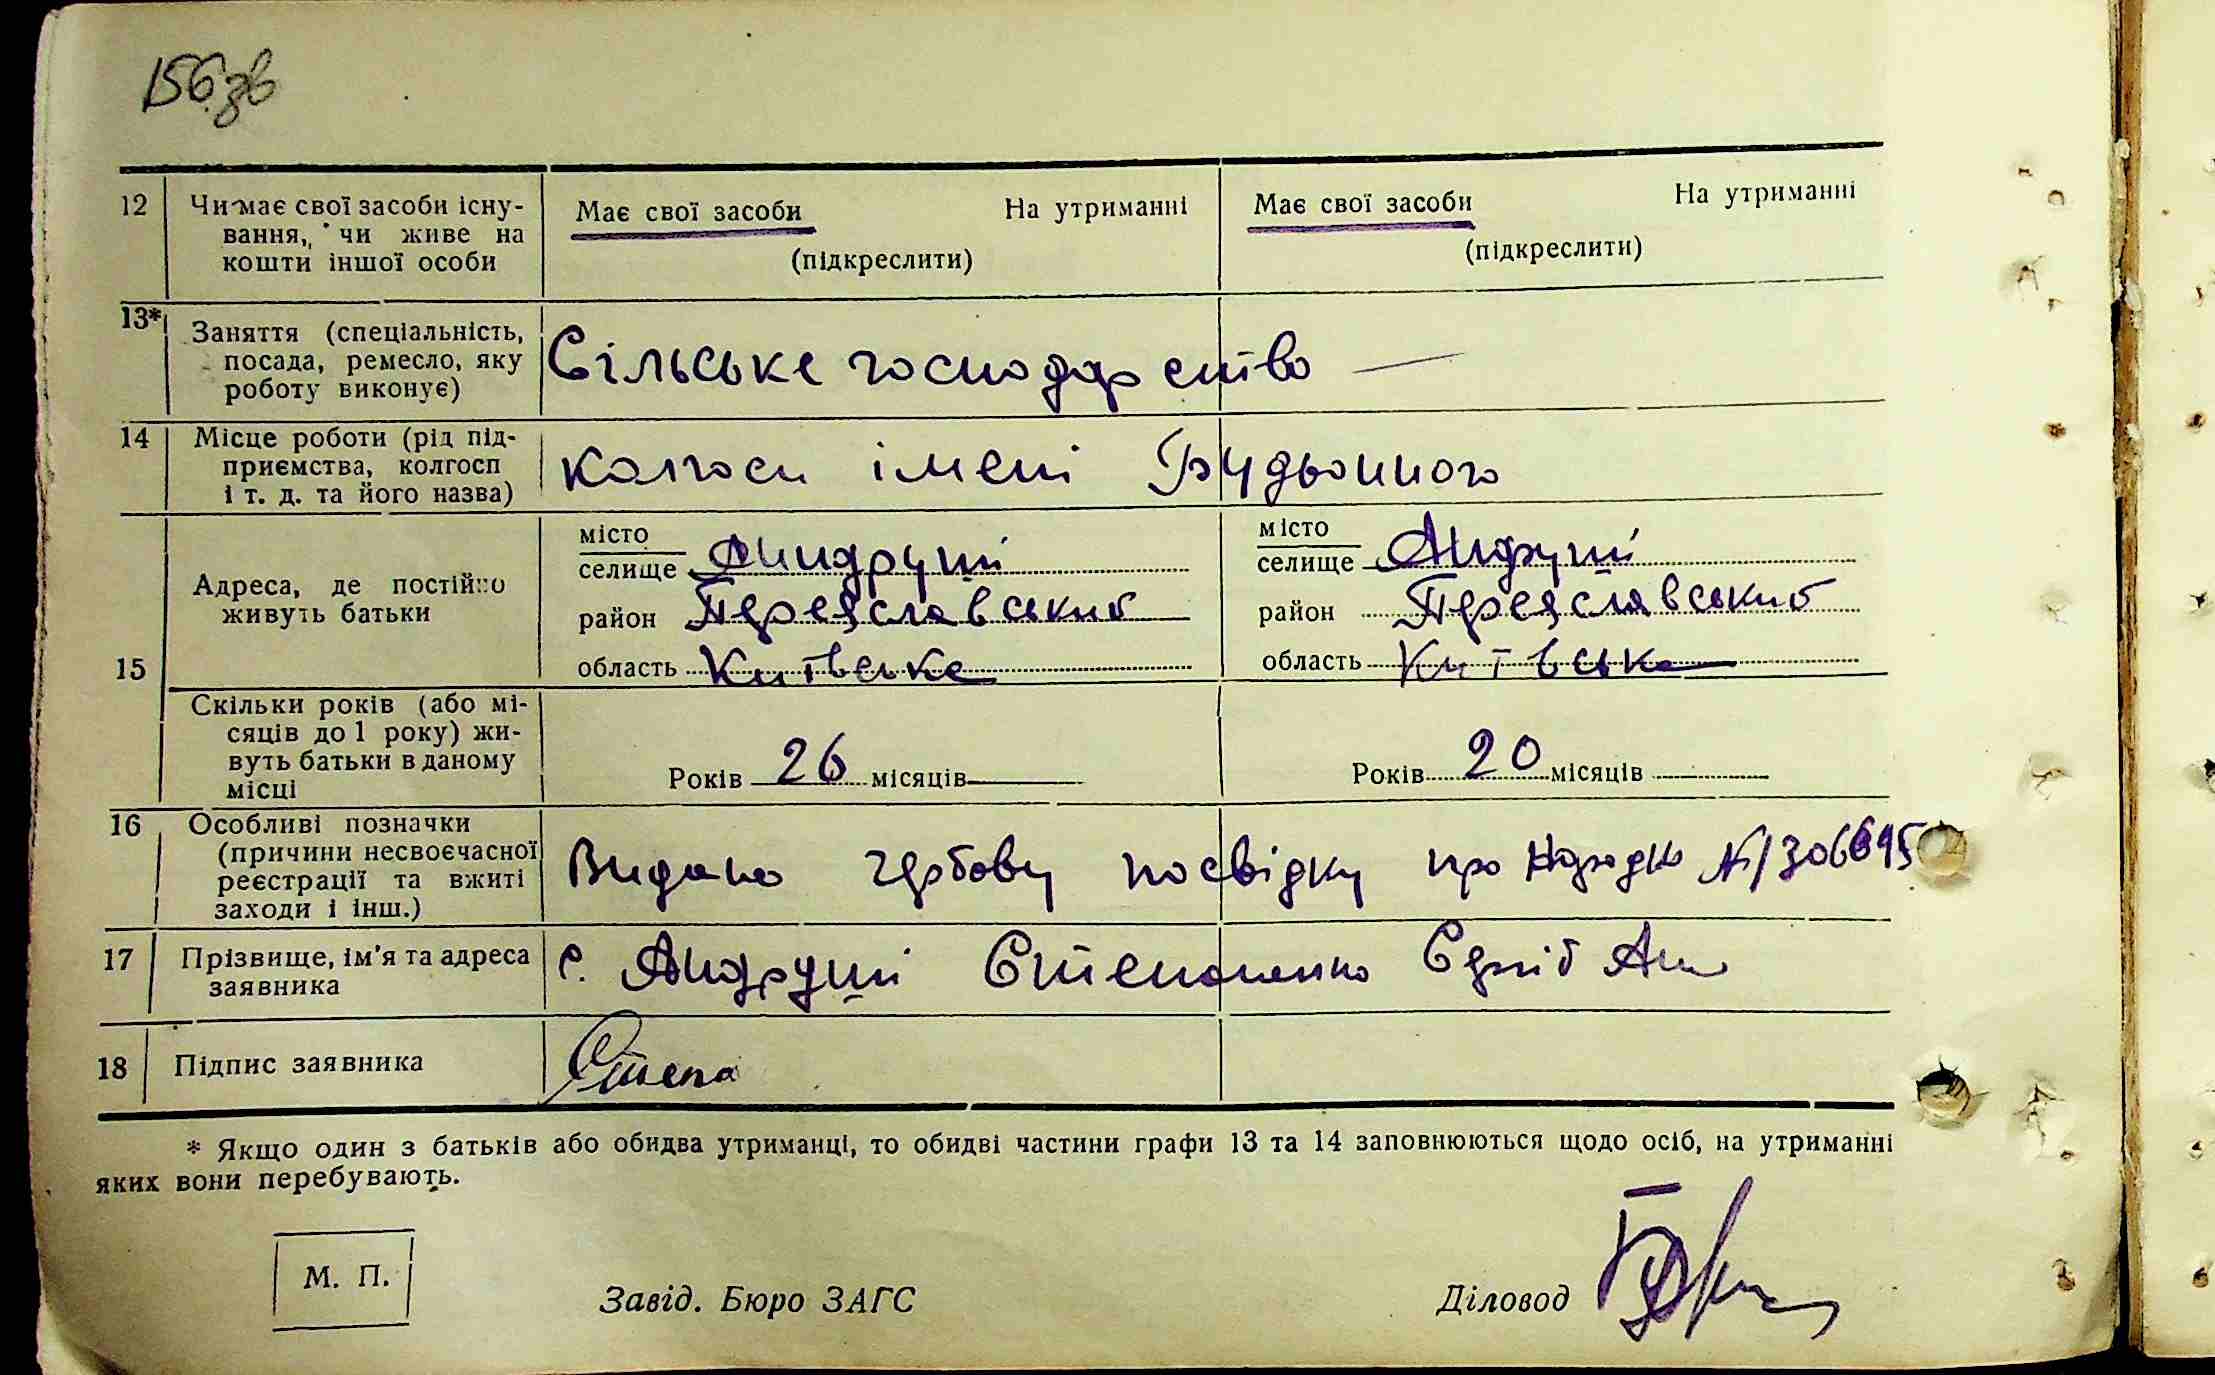 156зв
12 Чи має свої засоби існу- Має свої засоби На утриманні Має свої засоби На утриманні
вання, чи живе на (підкреслити) (підкреслити)
кошти іншої особи
13* Заняття (спеціальність, Сільське господарство —
посада, ремесло, яку
роботу виконує)
14 Місце роботи (рід під- колгосп імені Будьонного
приємства, колгосп
і т. д. та його назва)
15 Адреса, де постійно живуть батьки
місто місто
селище Андруші селище Андруші
район Переяславський район Переяславський
область Київське область Київська
Скільки років (або мі-
сяців до 1 року) жи-
вуть батьки в даному
місці
Років 26 місяців— Років 20 місяців
16 Особливі позначки
(причини несвоєчасної Видано гербову посвідку про народж №1306695
реєстрації та вжиті
заходи і інш.)
17 Прізвище, ім'я та адреса с. Андруші Степаненко Сергій Ан
заявника
18 Підпис заявника Степа
* Якщо один з батьків або обидва утриманці, то обидві частини графи 13 та 14 заповнюються щодо осіб, на утриманні
яких вони перебувають.
М. П.
Завід. Бюро ЗАГС Діловод